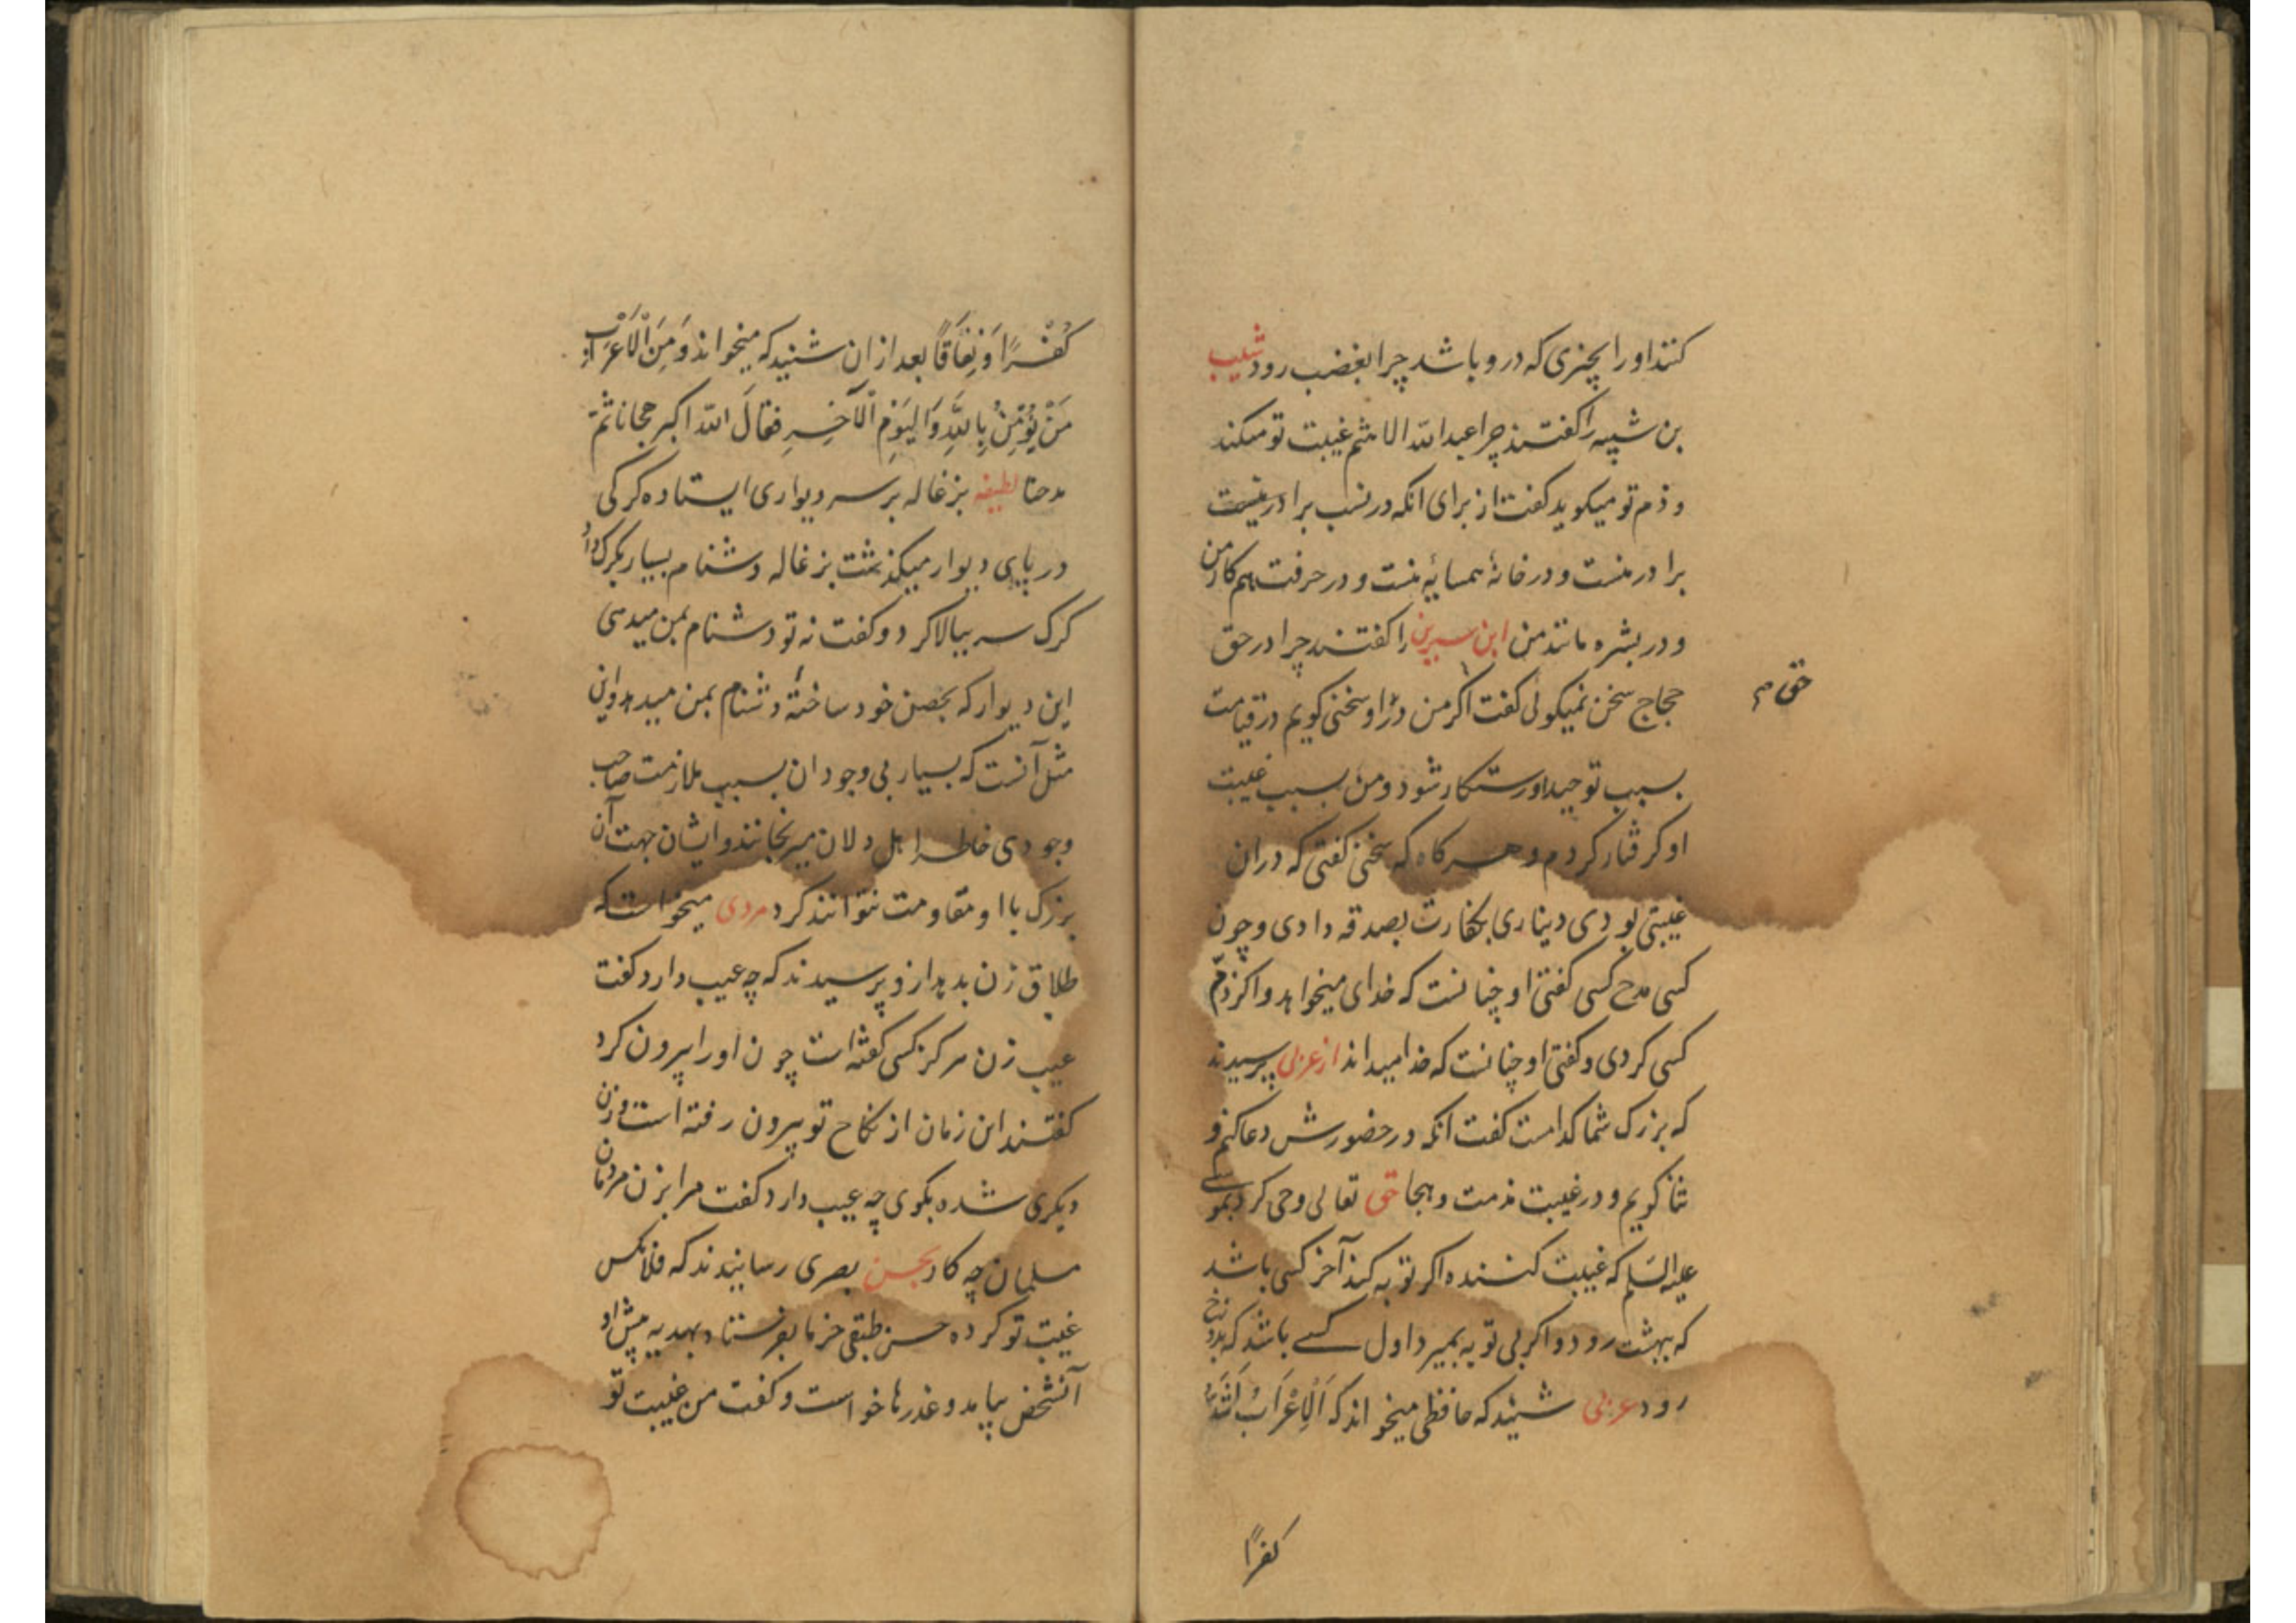 کنند او را بچیزی که درو باشد چرا بغضب رود شبیب
بن شیبه را کفتند چرا عبدالله الاهثم غیبت تو میکند
و ذم تو میکوید کفت از برای انکه در نسب برادر نیست
برادر منست و در خانهٔ همسایهٔ منست و در حرفت هم کار من
و در بشره مانند من ابن سیرین را کفتند چرا در حق
حجاج سخن نمیکوئی کفت اکر من در او سخنی کویم در قیامت
حق م
بسبب توحید او رستکار شود و من بسبب غیبت
او کرفتار کردم و هر کاه که سخنی کفتی که دران
غیبتی بودی دیناری بکفارت بصدقه دادی و چون
کسی مدح کسی کفتی او چنانست که خدای میخواهد و اکر ذم
کسی کردی و کفتی او چنانست که خدا میداند از عربی پرسیدند
که بزرک شما کدامست کفت انکه در حضورش دعا کنم و
ثنا کویم و در غیبت مذمت و هجا حق تعالی وحی کرد بموسے
علیه السلم که غیبت کننده اکر توبه کند آخر کسی باشد
که ببهشت رود و اکر بی توبه بمیرد اول کسے باشد که بدوزخ
رود عربی شنید که حافظی میخواند که اَلْاَعْرَابُ اَشَدُّ
کفرًا
کُفْرًا وَ نِفَاقًا بعد از ان شنید که میخواند وَ مِنَ الْاَعْرَابِ
مَنْ یُؤْمِنُ بِاللّٰهِ وَ الْیَوْمِ الْآخِرِ فقالَ الله اکبر هجانا ثمّ
مدحنا لطیفه بزغاله بر سر دیواری ایستاده کرکی
در پای دیوار میکذشت بزغاله دشنام بسیار بکرک داد
کرک سر ببالا کرد و کفت نه تو دشنام بمن میدهی
این دیوار که بحصن خود ساختهٔ دشنام بمن میدهد و این
مثل آنست که بسیار بی وجودان بسبب ملازمت صاحب
وجودی خاطر اهل دلان میرنجانند و ایشان جهت آن
بزرک با او مقاومت نتوانند کرد مردی میخواست که
طلاق زن بدهد ازو پرسیدند که چه عیب دارد کفت
عیب زن هرکز کسی کفته است چون او را بیرون کرد
کفتند این زمان از نکاح تو بیرون رفته است و زن
دیکری شده بکوی چه عیب دارد کفت مرا بزن مردمان
مسلمان چه کار بحسن بصری رسانیدند که فلانکس
غیبت تو کرده حسن طبقی خرما بفرستاد بهدیه پیش او
آنشخص بیامد و عذرها خواست و کفت من غیبت تو